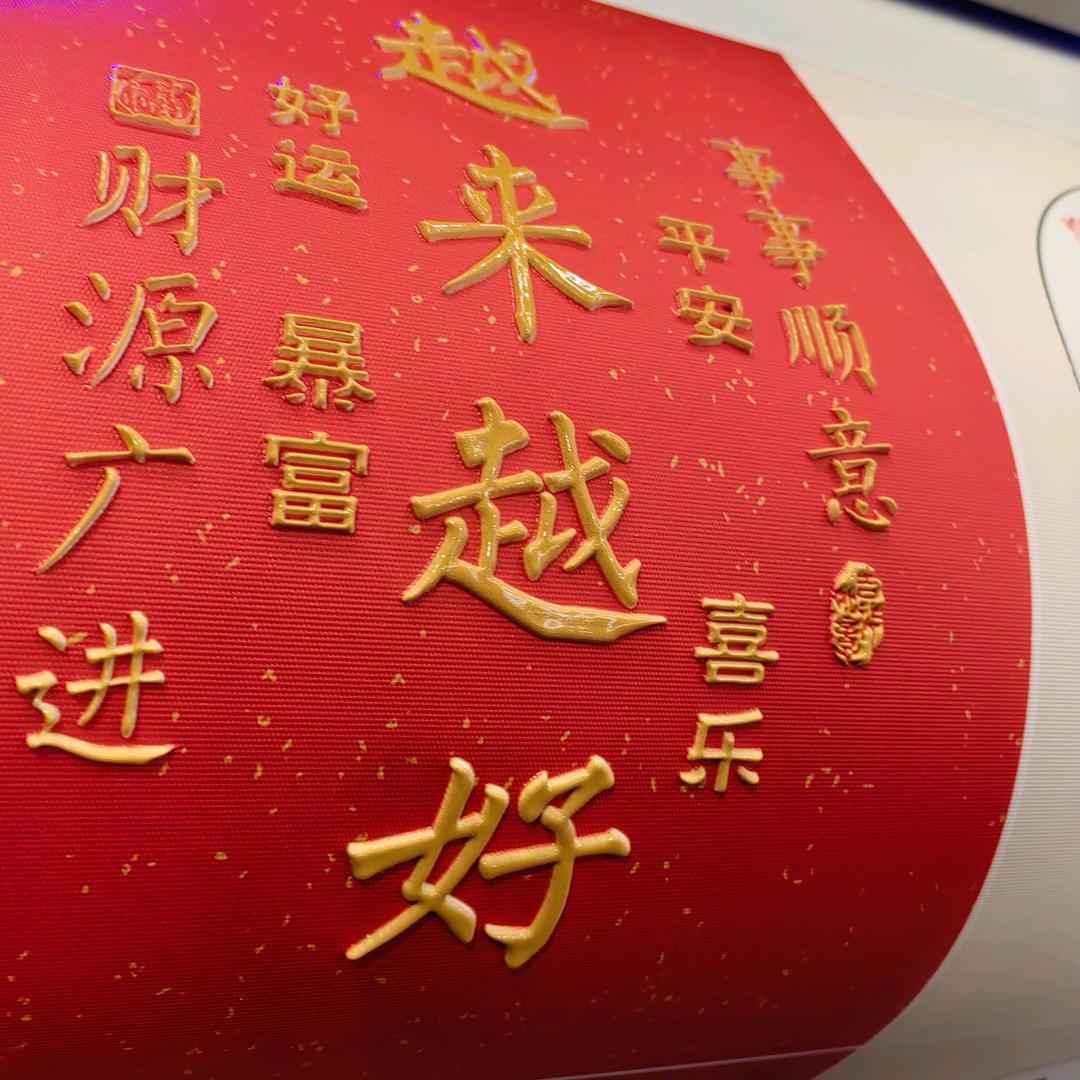 越来越好
事事顺意
平安
喜乐
好运
暴富
财源广进